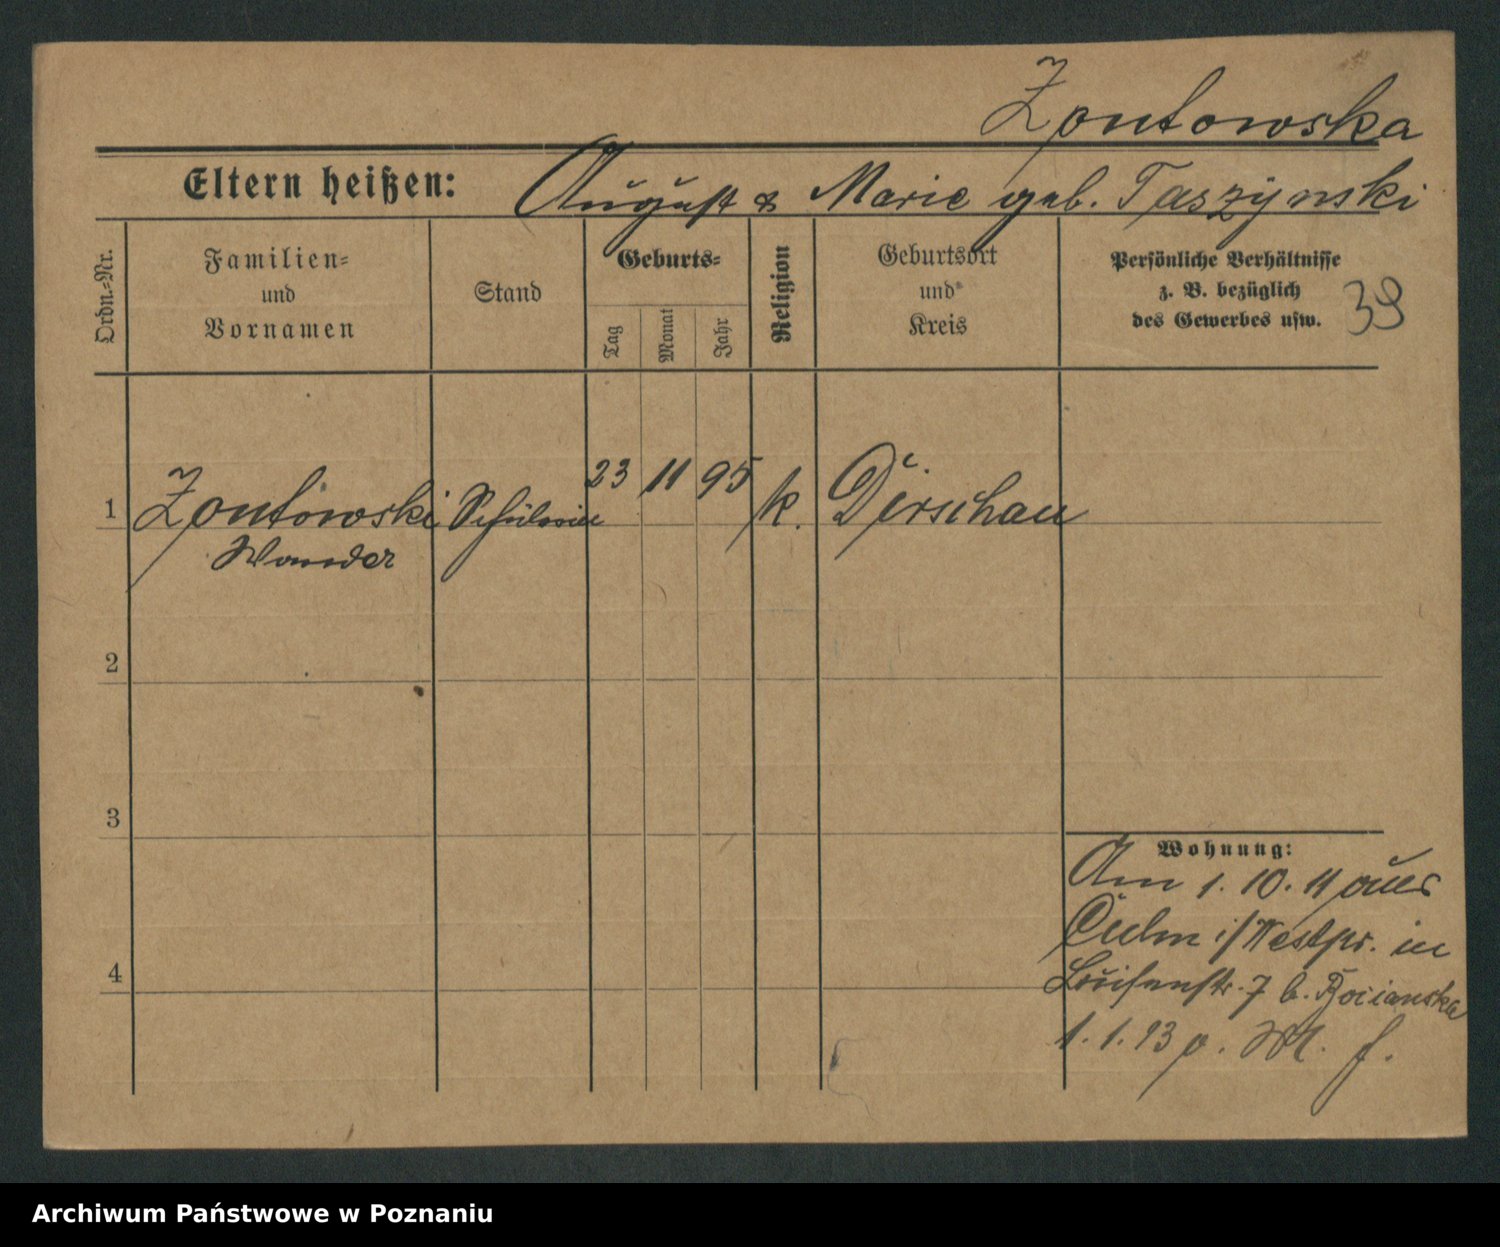 Zontowska
Eltern heißen: August & Marie geb. Taszynski
Ordn.-Nr.
Familien-
und
Vornamen
Stand
Geburts-
Tag
Monat
Jahr
Religion
Geburtsort
und
Kreis
Persönliche Verhältnisse
z. B. bezüglich
des Gewerbes usw.
39
1 Zontowski Schülerin 23 11 95 k. Dirschau
Wanda
2
3
4
Wohnung:
Am 1. 10. 11 aus
Culm i/Westpr. in
Luisenstr. 7 b.
1. 1. 13 o. M. f.
Archiwum Państwowe w Poznaniu